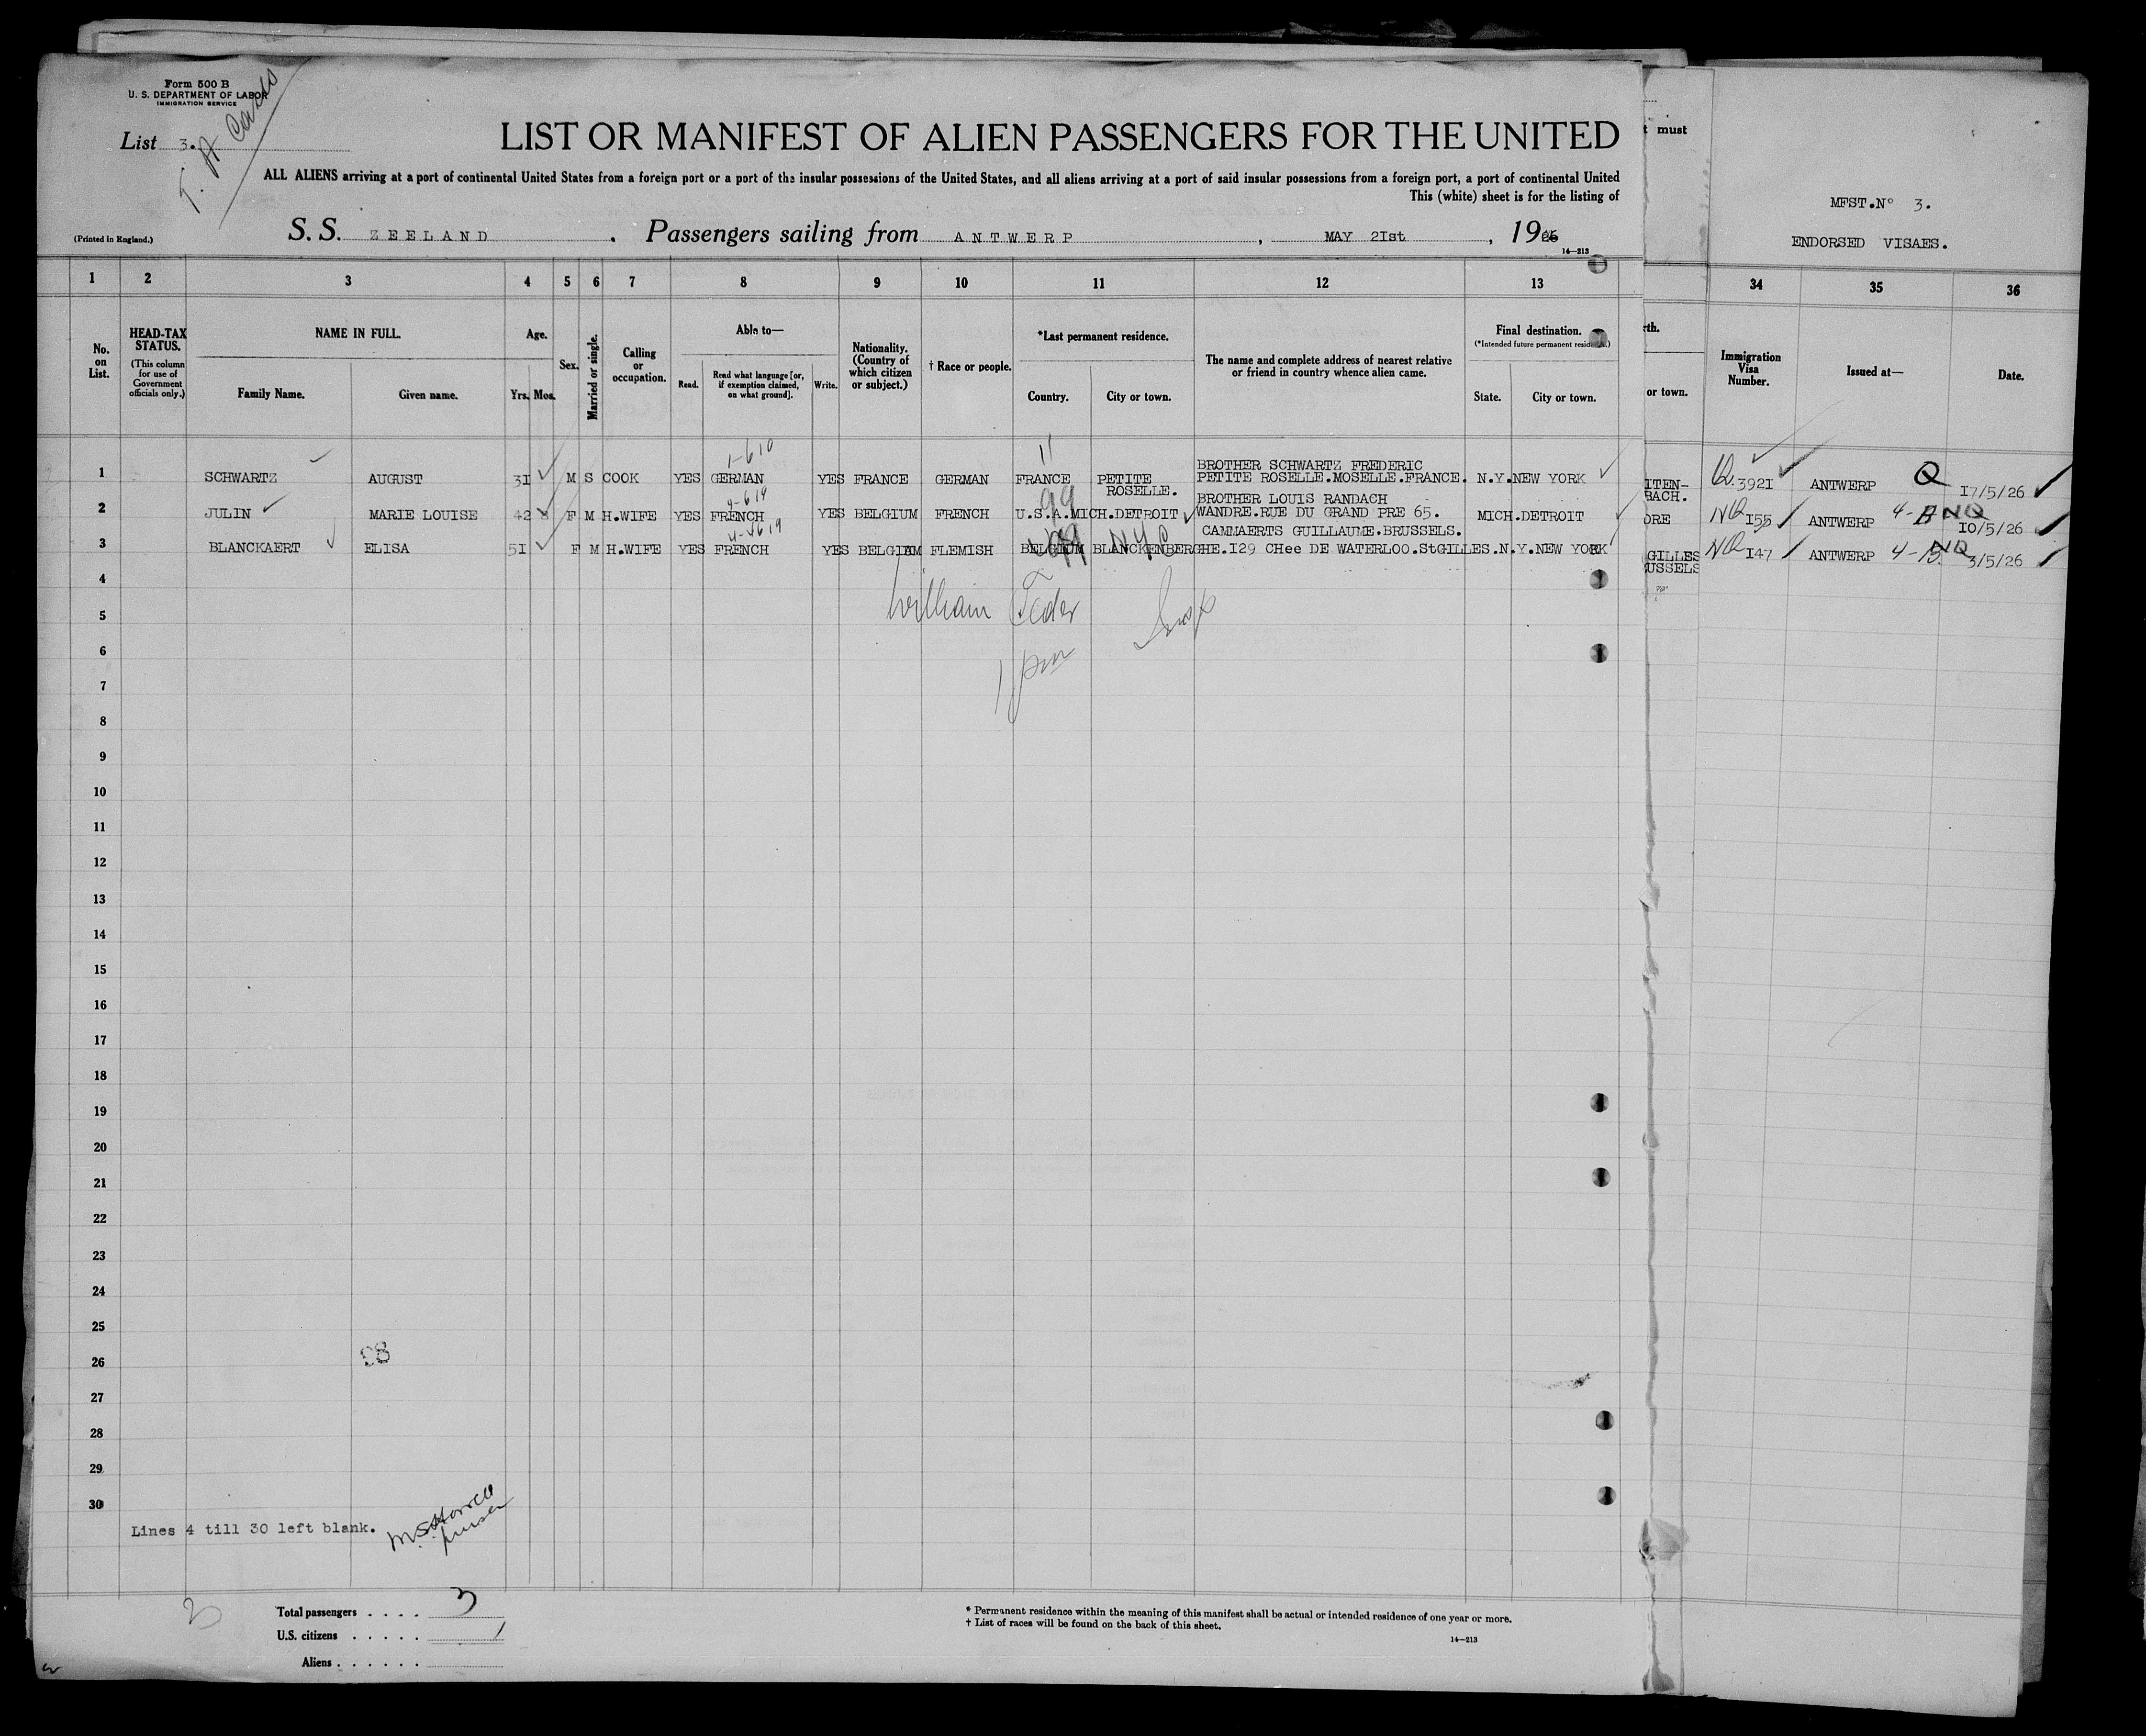 Form 500 B
U. S. DEPARTMENT OF LABOR
IMMIGRATION SERVICE
List 3.
LIST OR MANIFEST OF ALIEN PASSENGERS FOR THE UNITED
t must
ALL ALIENS arriving at a port of continental United States from a foreign port or a port of the insular possessions of the United States, and all aliens arriving at a port of said insular possessions from a foreign port, a port of continental United
This (white) sheet is for the listing of
MFST.N° 3.
ENDORSED VISAES.
(Printed in England.)
S. S. ZEELAND. Passengers sailing from ANTWERP, MAY 2Ist, 1926
14—213
1 2 3 4 5 6 7 8 9 10 11 12 13 34 35 36
No. on List.
HEAD-TAX STATUS.
(This column for use of Government officials only.)
NAME IN FULL.
Family Name. Given name.
Age.
Yrs. Mos.
Sex.
Married or single.
Calling or occupation.
Able to—
Read. Read what language [or, if exemption claimed, on what ground]. Write.
Nationality. (Country of which citizen or subject.)
† Race or people.
*Last permanent residence.
Country. City or town.
The name and complete address of nearest relative or friend in country whence alien came.
Final destination.
(*Intended future permanent residence.)
State. City or town.
rth.
or town.
Immigration Visa Number.
Issued at—
Date.
1-610 11
1 SCHWARTZ AUGUST 3I M S COOK YES GERMAN YES FRANCE GERMAN FRANCE PETITE ROSELLE. BROTHER SCHWARTZ FREDERIC PETITE ROSELLE.MOSELLE.FRANCE. N.Y. NEW YORK ITEN-BACH. Q.392I ANTWERP Q I7/5/26
4-619 99
2 JULIN MARIE LOUISE 42 8 F M H.WIFE YES FRENCH YES BELGIUM FRENCH U.S.A.MICH.DETROIT BROTHER LOUIS RANDACH WANDRE.RUE DU GRAND PRE 65. MICH.DETROIT ORE NQ I55 ANTWERP 4-B NQ IO/5/26
4-619 99 NYC
3 BLANCKAERT ELISA 5I F M H.WIFE YES FRENCH YES BELGIUM FLEMISH BELGIUM BLANCKENBERGHE. CAMMAERTS GUILLAUME.BRUSSELS. I29 CHee DE WATERLOO.StGILLES. N.Y.NEW YORK GILLES USSELS NQ I47 ANTWERP 4-B. NQ 3/5/26
William Feder Insp
1 pm
4
5
6
7
8
9
10
11
12
13
14
15
16
17
18
19
20
21
22
23
24
25
26
98
27
28
29
30
Lines 4 till 30 left blank.
purser
Total passengers . . . . 3
U.S. citizens . . . . .
Aliens . . . . . .
* Permanent residence within the meaning of this manifest shall be actual or intended residence of one year or more.
† List of races will be found on the back of this sheet.
14—213